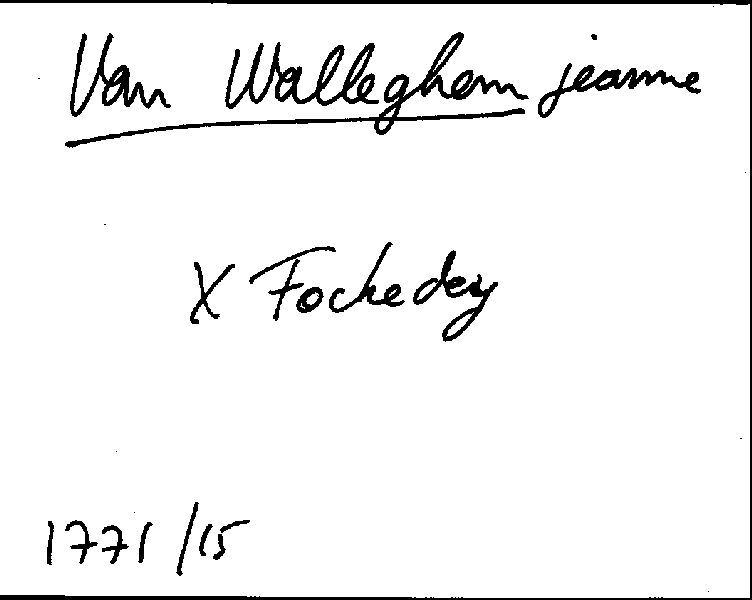 Van Walleghem jeanne
X Fockedey
1771/15